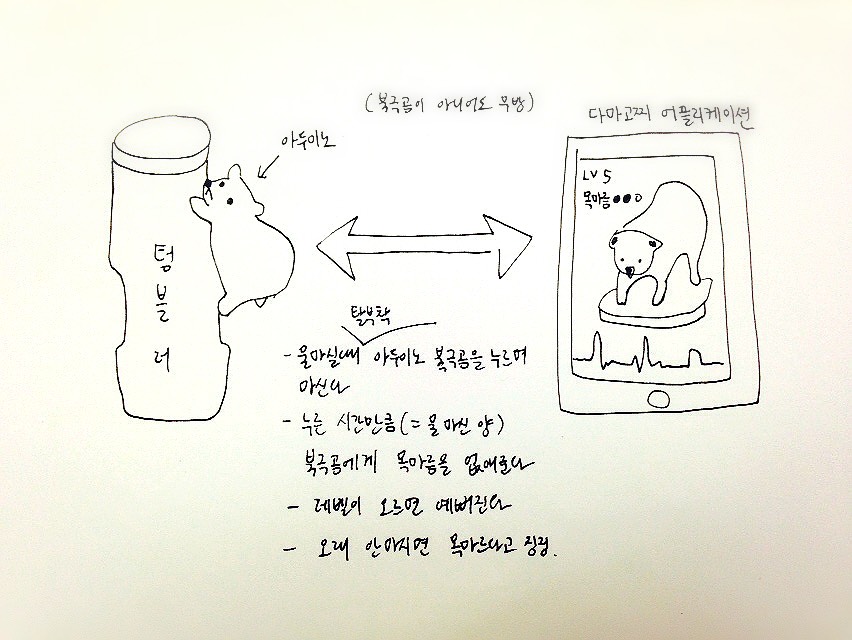 (북극곰이 아니어도 무방)
다마고찌 어플리케이션
아두이노
텀블러
LV 5
목마름
탈부착
- 물마실때 아두이노 북극곰을 누르며
마신다
- 누른 시간만큼(= 물 마신 양)
북극곰에게 목마름을 없애준다
- 레벨이 오르면 예뻐진다
- 오래 안마시면 목마르다고 징징.